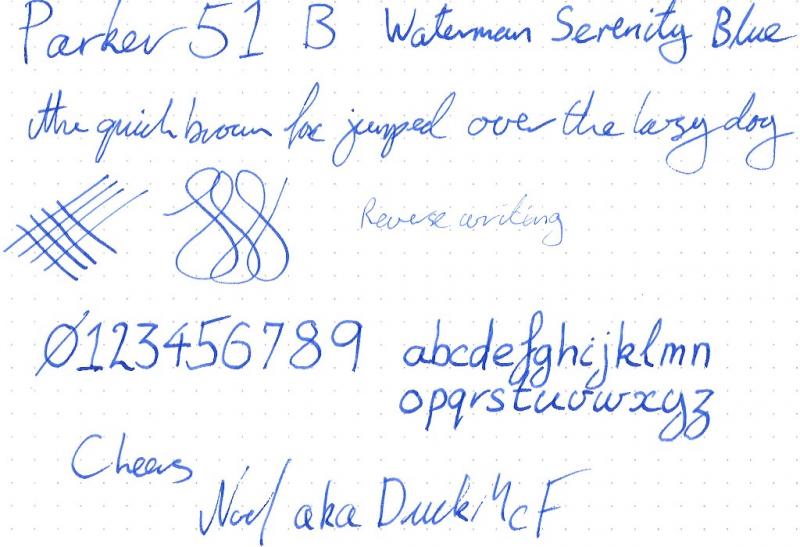 Parker 51 B Waterman Serenity Blue
the quick brown fox jumped over the lazy dog
Reverse writing
0123456789
abcdefghijklmn
opqrstuvwxyz
Cheers
Noel aka DuckiMcF